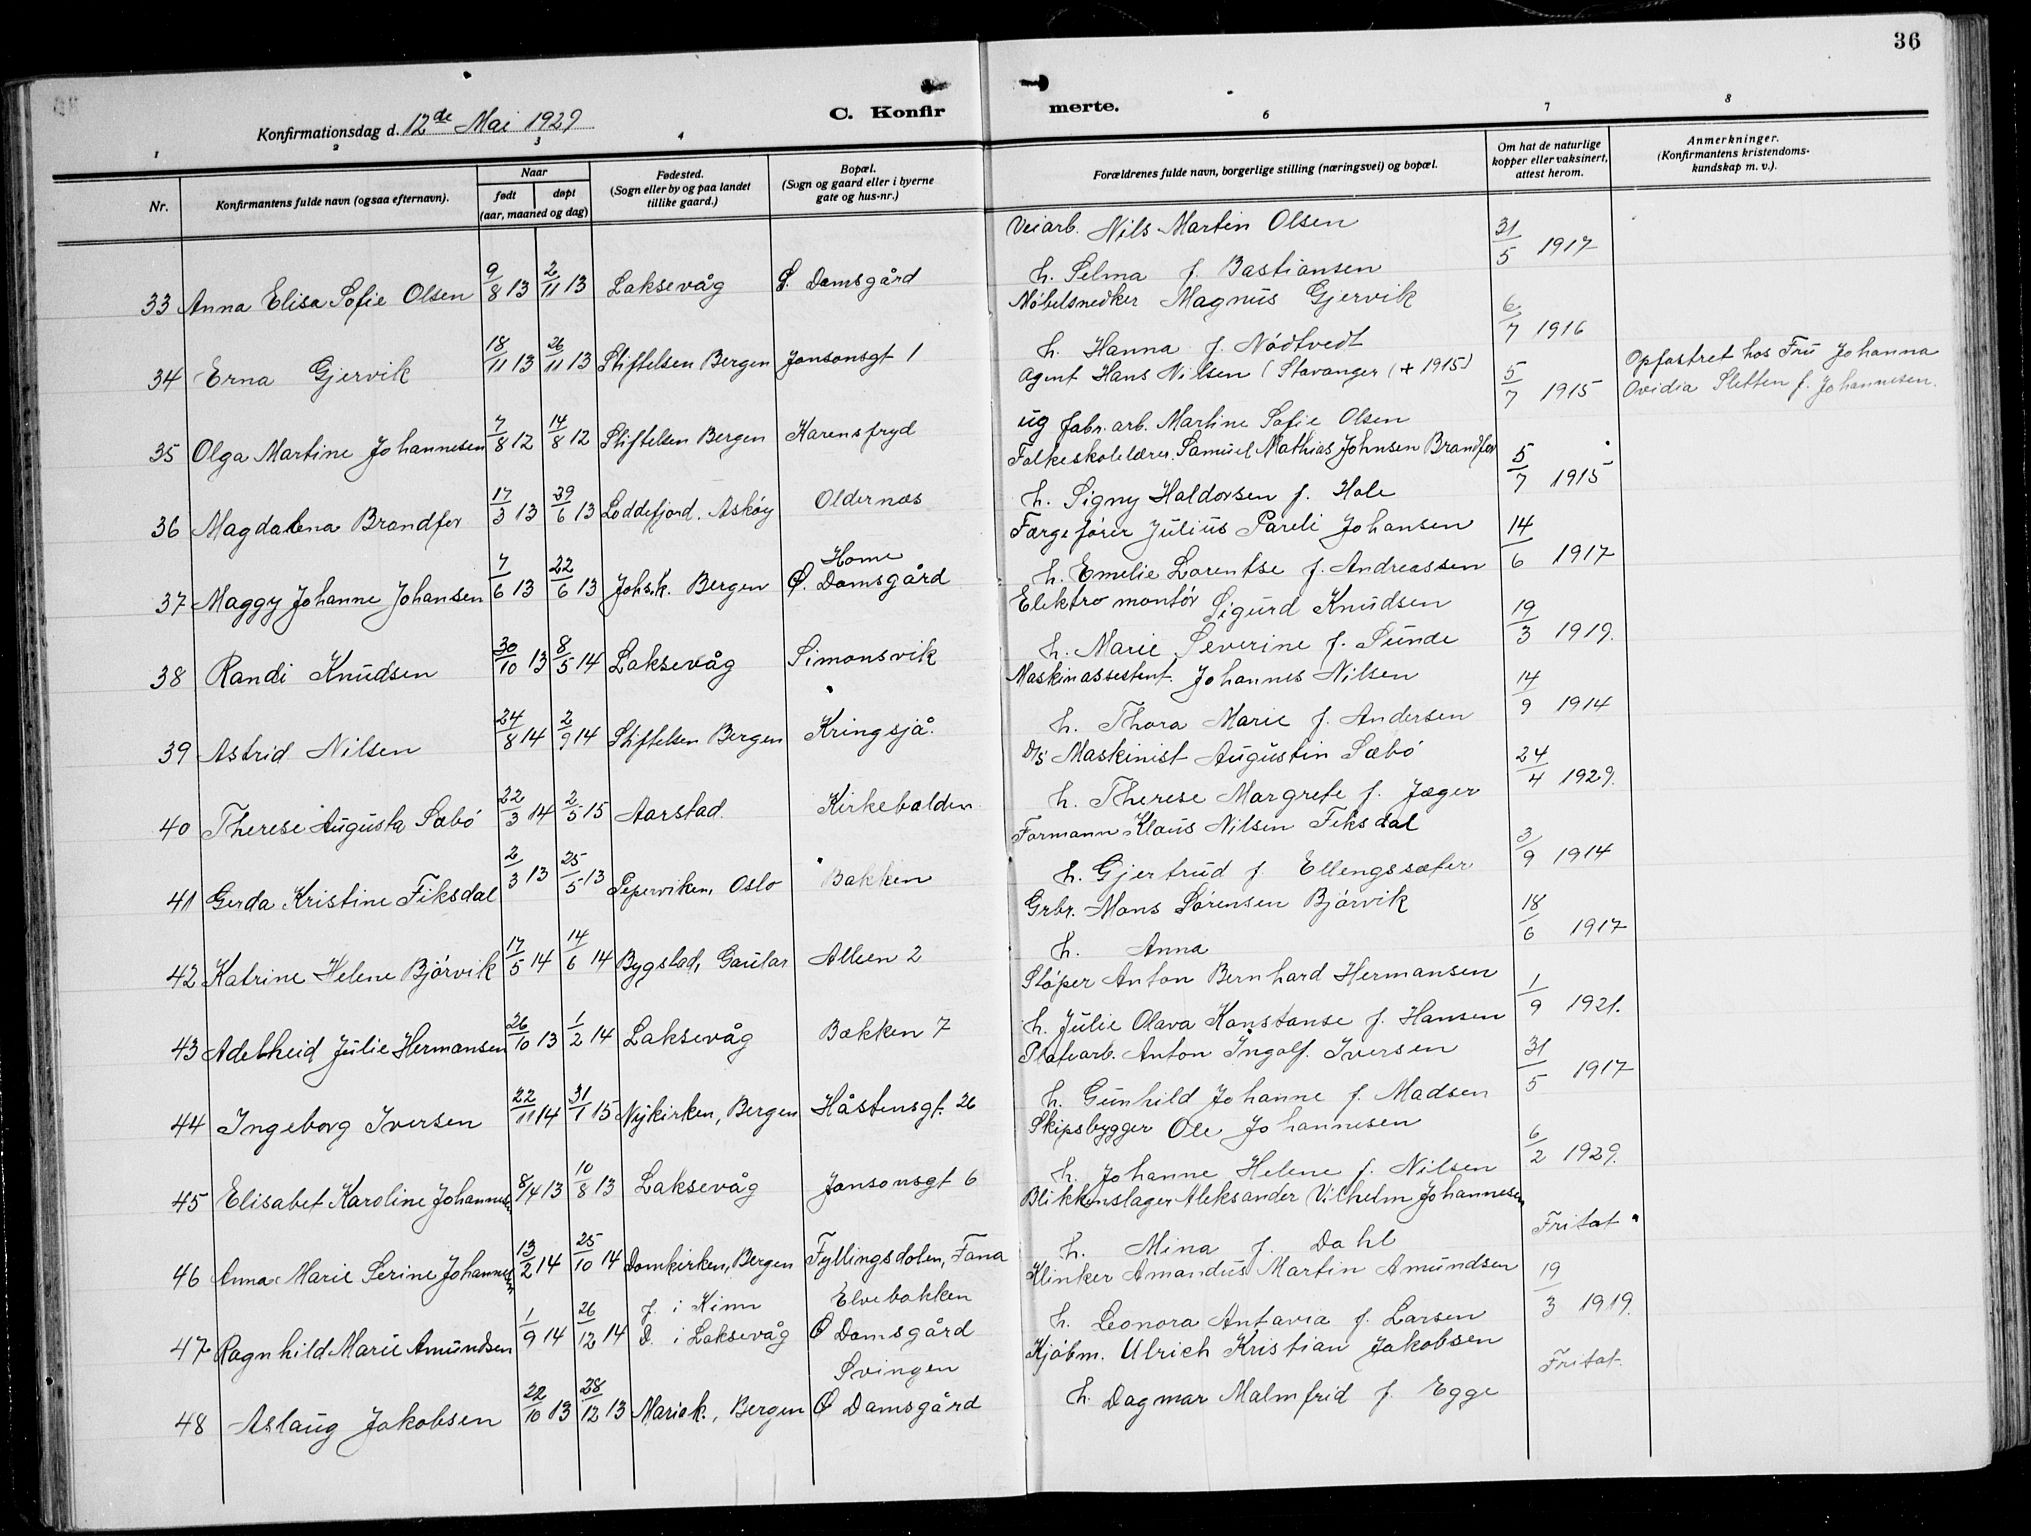 36
Konfirmationsdag d. 12de Mai 1929
C. Konfirmerte.
1 2 3 4 6 7 8
Nr.
Konfirmantens fulde navn (ogsaa efternavn).
Naar
født
døpt
(aar, maaned og dag)
Fødested.
(Sogn eller by og paa landet
tillike gaard.)
Bopæl.
(Sogn og gaard eller i byerne
gate og hus-nr.)
Forældrenes fulde navn, borgerlige stilling (næringsvei) og bopæl.
Om hat de naturlige
kopper eller vaksinert,
attest herom.
Anmerkninger.
(Konfirmantens kristendoms-
kundskap m. v.).
Veiarb. Nils Martin Olsen
33 Anna Elisa Sofie Olsen 9/8 13 2/11 13 Laksevåg Ø. Damsgård h. Selma f. Bastiansen 31/5 1917
Møbelsnedker Magnus Gjervik
34 Erna Gjervik 18/11 13 26/11 13 Stiftelsen Bergen Jonsonsgt 1 h. Hanna f. Nödtvedt 6/7 1916
Agent Hans Nilsen (Stavanger (+ 1915) Opfostret hos Fru Johanna
35 Olga Martine Johannesen 7/8 12 14/8 12 Stiftelsen Bergen Karensfryd ug fabr. arb. Martine Sofie Olsen 5/7 1915 Ovidia Sletten f. Johannesen.
Folkeskolelærer Samuel Mathias Johnsen Brandfor
36 Magdalena Brandfor 17/3 13 29/6 13 Loddefjord, Askøy Oldernæs h. Signy Haldorsen f. Hole 5/7 1915
Færgefører Julius Pareli Johansen
Home
37 Maggy Johanne Johansen 7/6 13 22/6 13 Johs.k. Bergen Ø. Damsgård h. Emelie Lorentse f. Andreassen 14/6 1917
Elektro montör Sigurd Knudsen
38 Randi Knudsen 30/10 13 8/5 14 Laksevåg Simonsvik h. Marie Severine f. Sunde 19/3 1919.
Maskinassestent. Johannes Nilsen
39 Astrid Nilsen 24/8 14 2/9 14 Stiftelsen Bergen Kringsjå. h. Thora Marie f. Andersen 14/9 1914
D/s Maskinist Augustin Sæbö
40 Therese Augusta Sæbö 22/3 14 2/5 15 Aarstad. Kirkebolden h. Therese Margrete f. Jæger 24/4 1929.
Formann Klaus Nilsen Fiksdal
41 Gerda Kristine Fiksdal 2/3 13 25/5 13 Peperviken, Oslo Bakken h. Gjertrud f. Ellengssæter 3/9 1914
Grbr. Mons Sörensen Björvik
42 Katrine Helene Björvik 17/5 14 14/6 14 Bygstad, Gaular Alleen 2 h. Anna 18/6 1917
Stöper Anton Bernhard Hermansen
43 Adelheid Julie Hermansen 26/10 13 1/2 14 Laksevåg Bakken 7 h. Julie Olava Konstanse f. Hansen 1/9 1921.
Platearb. Anton Ingolf. Iversen
44 Ingeborg Iversen 22/11 14 31/1 15 Nykirken, Bergen Håstensgt. 26 h. Gunhild Johanne f. Madsen 31/5 1917
Skipsbygger Ole Johannesen
45 Elisabet Karoline Johannesen 8/4 13 10/8 13 Laksevåg Jonsonsgt 6 h. Johanne Helene f. Nilsen 6/2 1929.
Blikkenslager Aleksander Vilhelm Johannesen
46 Anna Marie Serine Johannesen 13/2 14 25/10 14 Domkirken, Bergen Fyllingsdalen, Fana h. Mina f. Dahl Fritat
Klinker Amandus Martin Amundsen
f. i Kinn Elvebakken
47 Ragnhild Marie Amundsen 1/9 14 26/12 14 D. i Laksevåg Ø Damsgård h. Leonora Antavia f. Larsen 19/3 1919.
Kjöbm. Ulrich Kristian Jakobsen
Svingen
48 Aslaug Jakobsen 22/10 13 28/12 13 Mariak., Bergen Ø Damsgård h. Dagmar Malmfrid f. Egge Fritat